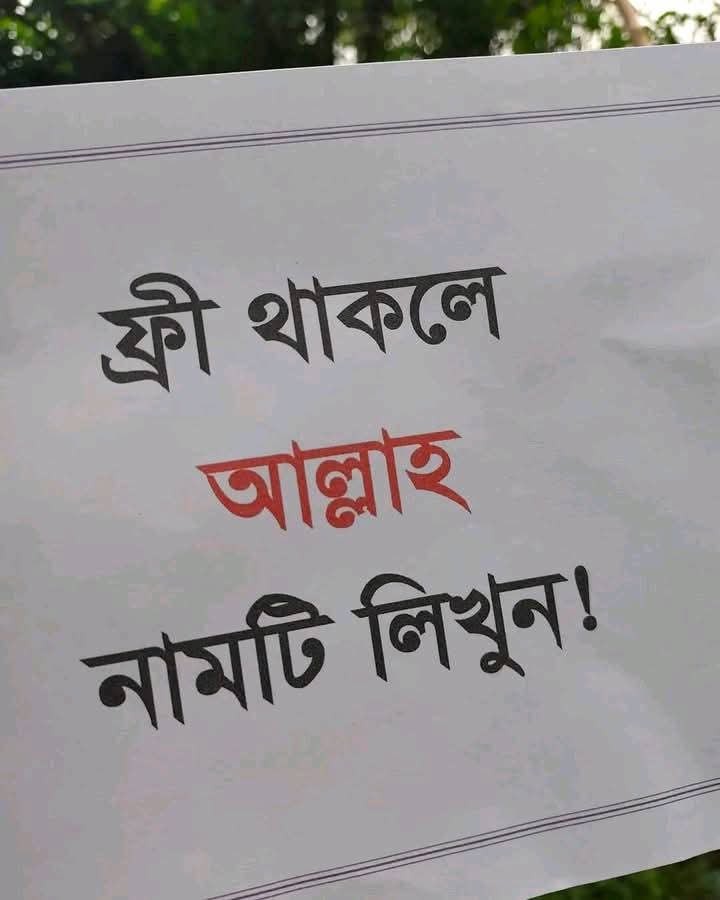 ফ্রী থাকলে
আল্লাহ
নামটি লিখুন!